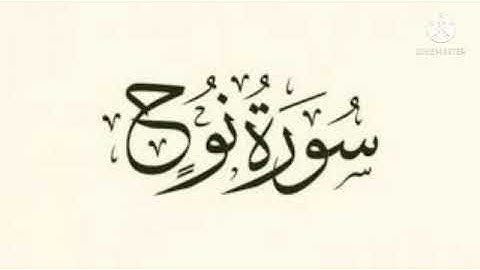 سُورَةُ نُوحٍ
KINEMASTER